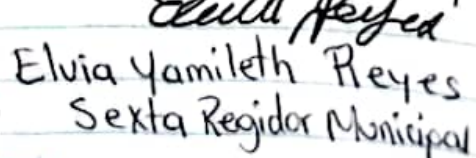 Elvia Reyes
Elvia Yamileth Reyes
Sexta Regidor Municipal